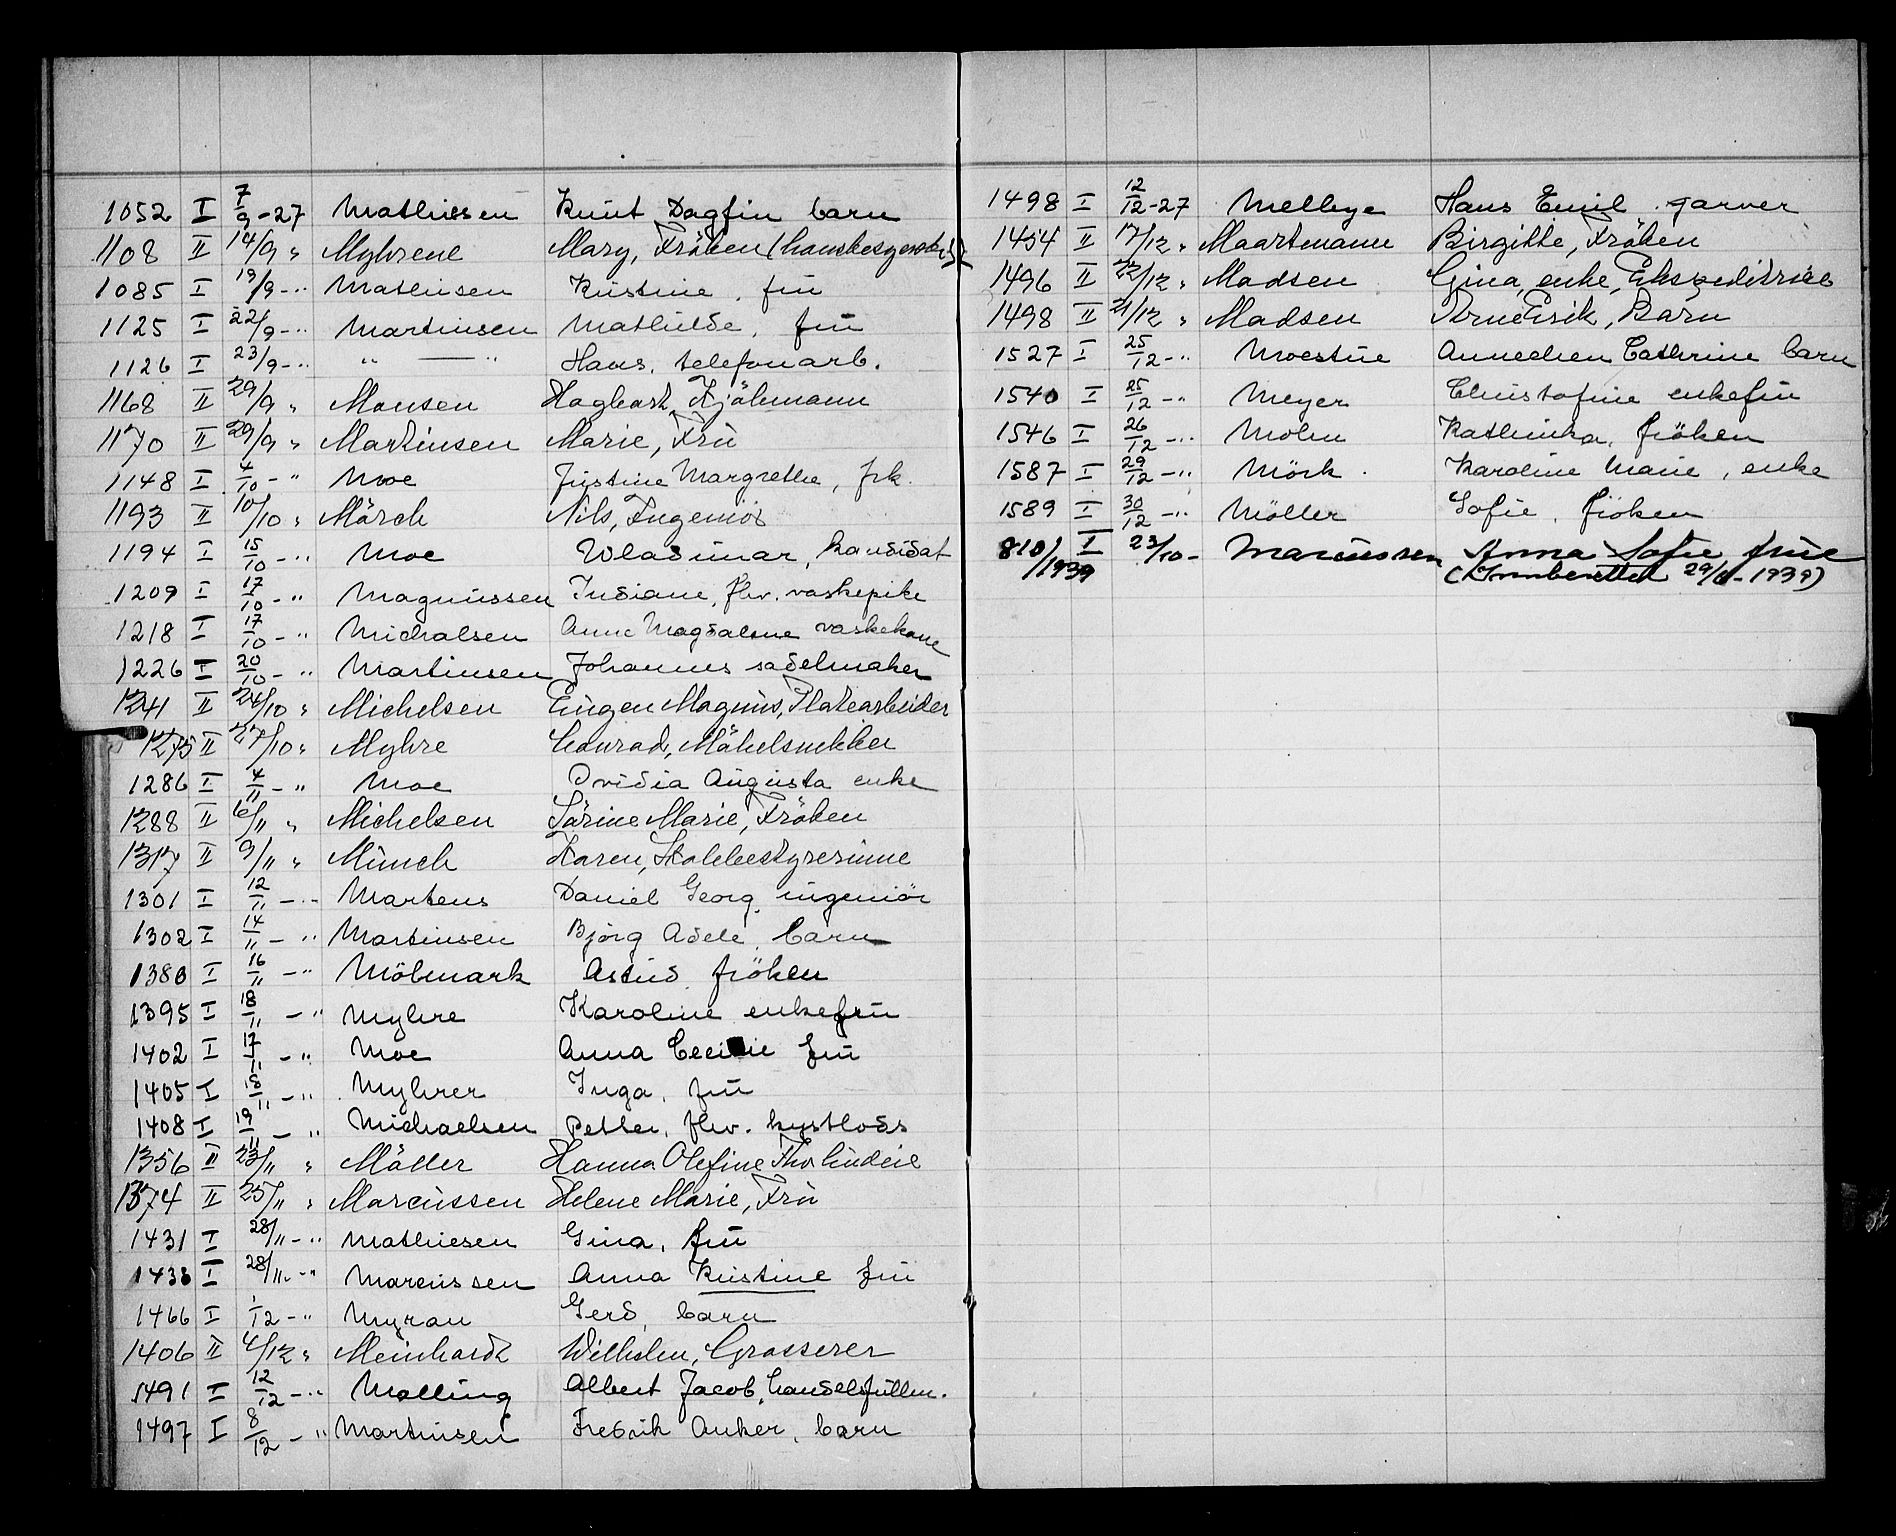 1052 I 7/9-27 Mathiesen Knut Dagfin barn
1108 II 14/9 " Myhrene Mary, Fröken
1085 I 19/9-" Mathisen Kristine, frü
1125 I 22/9-" Martinsen Mathilde, frü
1126 I 23/9-" " — " Hans, telefonarb.
1168 II 29/9 " Monsen Hagbart, Kjöbmann
1170 II 29/9 " Martinsen Marie, Frü
1148 I 4/10-" Moe Justine Margrethe, frk.
1193 II 10/10 " Mörch Nils, Ingeniör
1194 I 15/10-" Moe Wladimar, kandidat
1209 I 17/10-" Magnussen Indiane, fhv. vaskepike
1218 I 17/10-" Michalsen Anne Magdalene vaskekone
1226 I 20/10-" Martinsen Johannes sadelmaker
1241 II 24/10 " Michelsen Eugen Magnus, Platearbeider
1275 II 27/10 " Myhre Conrad, Möbelsnekker
1286 I 4/11-" Moe Ovidia Augusta enke
1288 II 6/11 " Michelsen Sörine Marie, Fröken
1317 II 9/11 " Münch Karen, Skolebestyrerinne
1301 I 12/11-" Martens Daniel Georg, ingeniör
1302 I 14/11-" Martinsen Björg Adele, barn
1380 I 16/11-" Mölmark Astrid, fröken
1395 I 18/11-" Myhre Karoline enkefrü
1402 I 17/11-" Moe Anna Cecilie frü
1405 I 18/11-" Myhrer Inga, frü
1408 I 19/11-" Michaelsen Petter, fhv. kystlods
1356 II 23/11 " Möller Hanna Olefine
1374 II 25/11 " Marcussen Helene Marie, Frü
1431 I 28/11-" Mathiesen Gina, frü
1433 I 28/11-" Marcussen Anna Kristine frü
1466 I 1/12-" Myran Gerd, barn
1406 II 4/12 " Meinhardt Wilhelm, Grosserer
1491 I 12/12-" Malling Albert Jacob, handelsfullm.
1497 I 8/12-" Martinsen Fredrik Anker, barn
1498 I 12/12-27 Mellbye Hans Emil garver
1454 II 17/12 " Maartmann Birgitte, Fröken
1496 II 22/12 " Madsen Gina, enke, Ekspeditrice
1498 II 21/12 " Madsen Arne Erik, Barn
1527 I 25/12-" Moestue Annechen Cathrine barn
1540 I 25/12-" Meyer Christofine enkefrü
1546 I 26/12-" Mohn Kathinka, fröken
1587 I 29/12-" Mörk Karoline Marie, enke
1589 I 30/12-" Möller Sofie, fröken
810/1939 I 23/10- Marcussen Anna Sofie frue
29/6-1939)